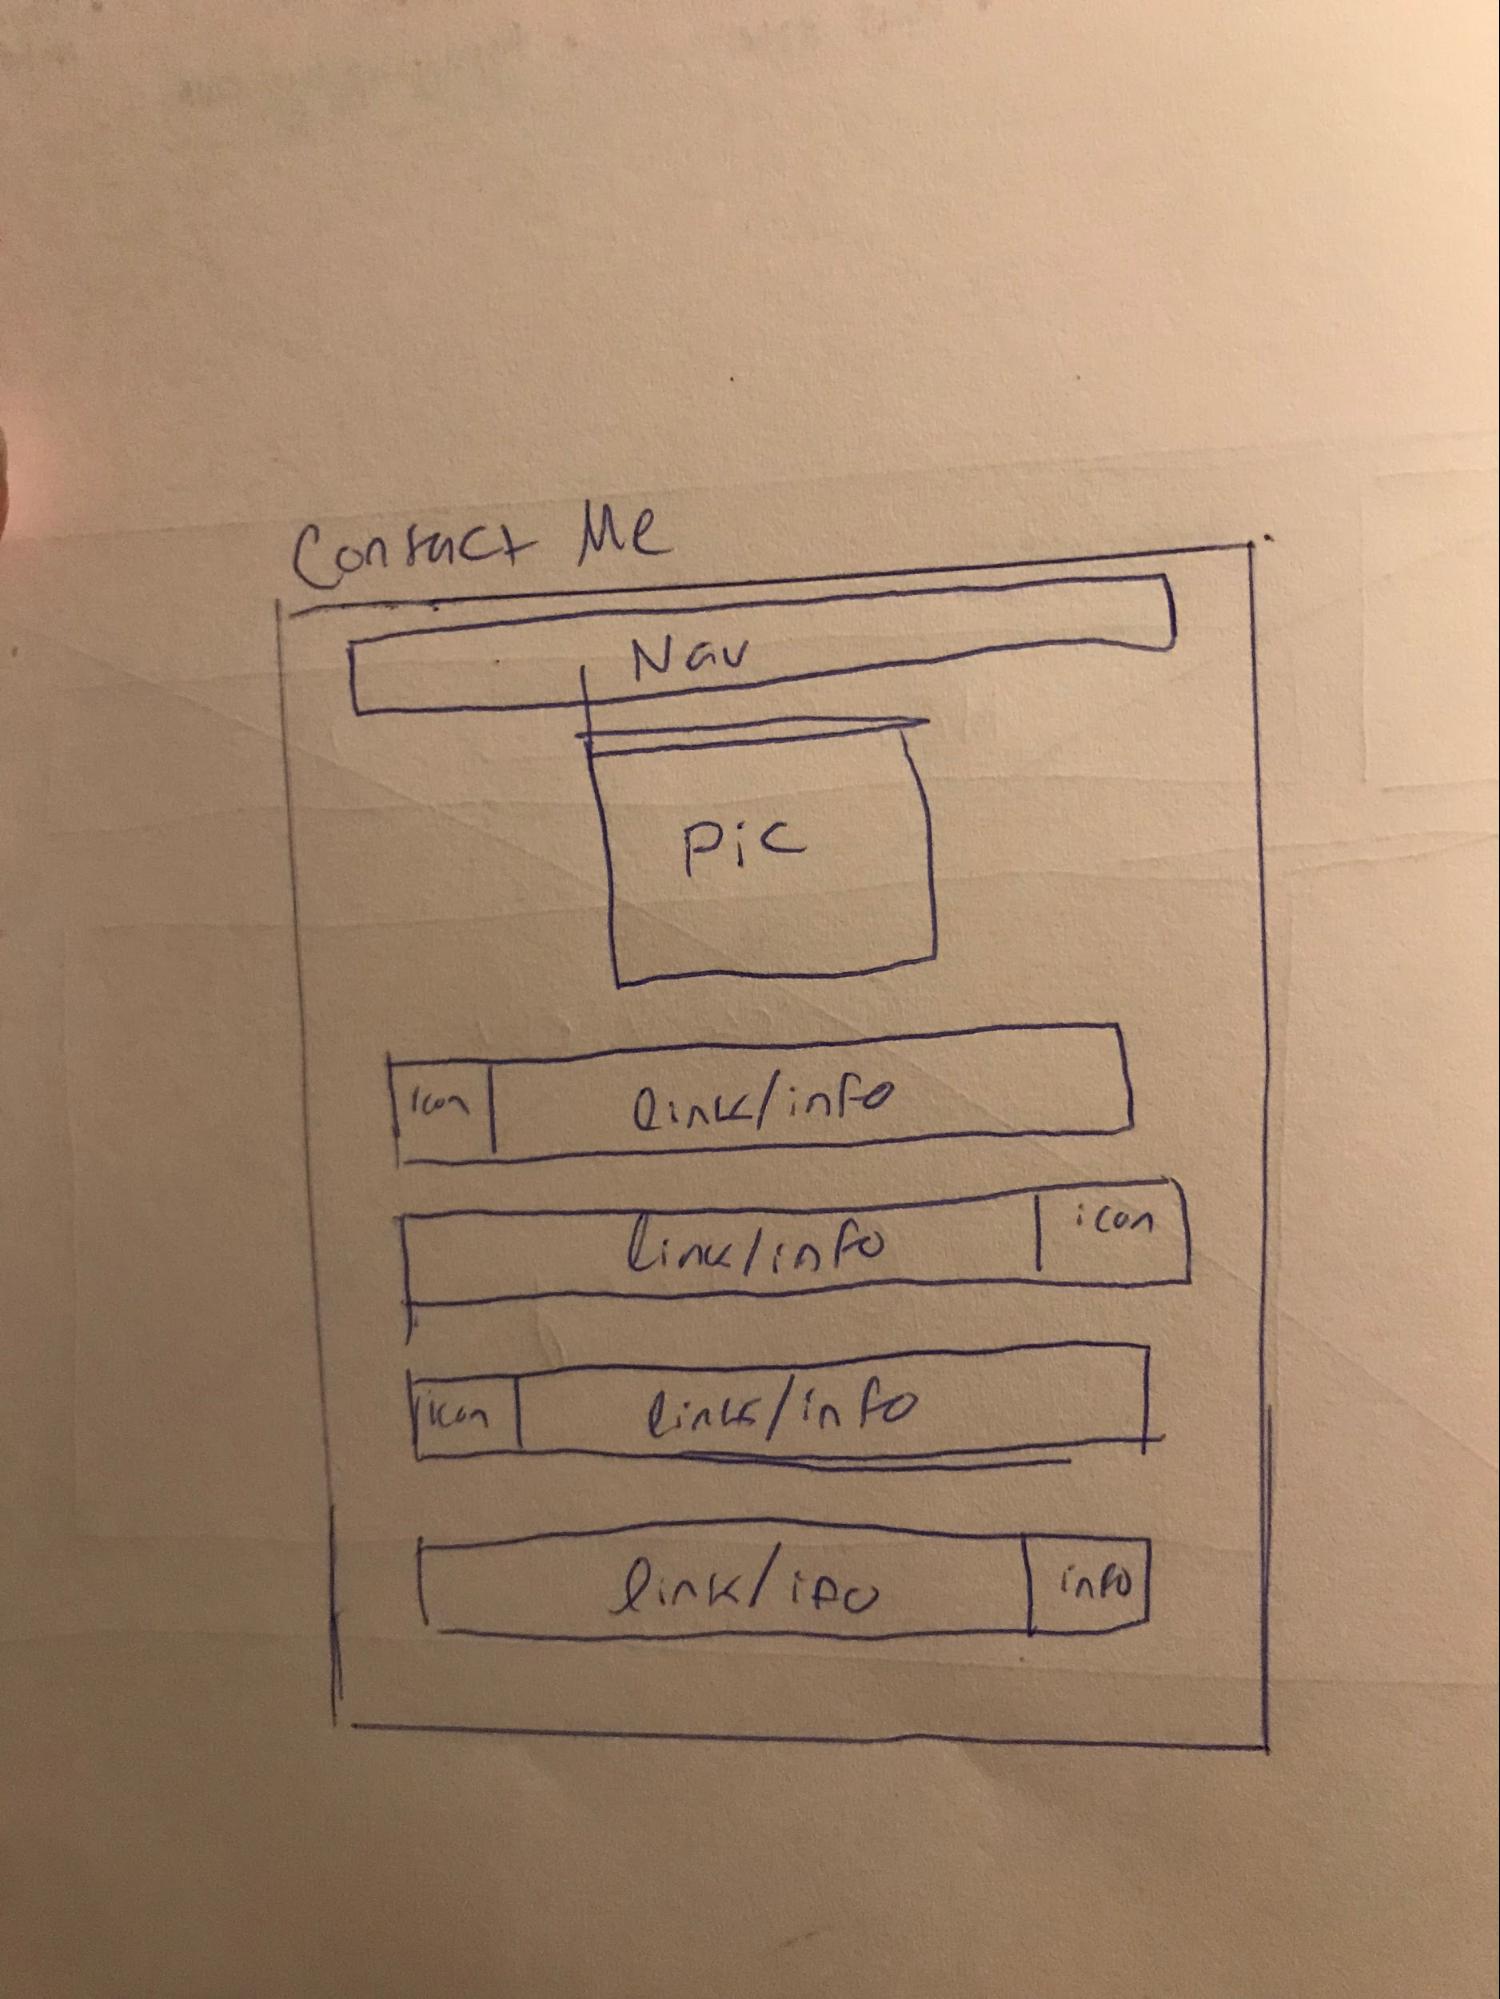 Contact Me
Nav
Pic
icon link/info
link/info icon
icon link/info
link/ifo info